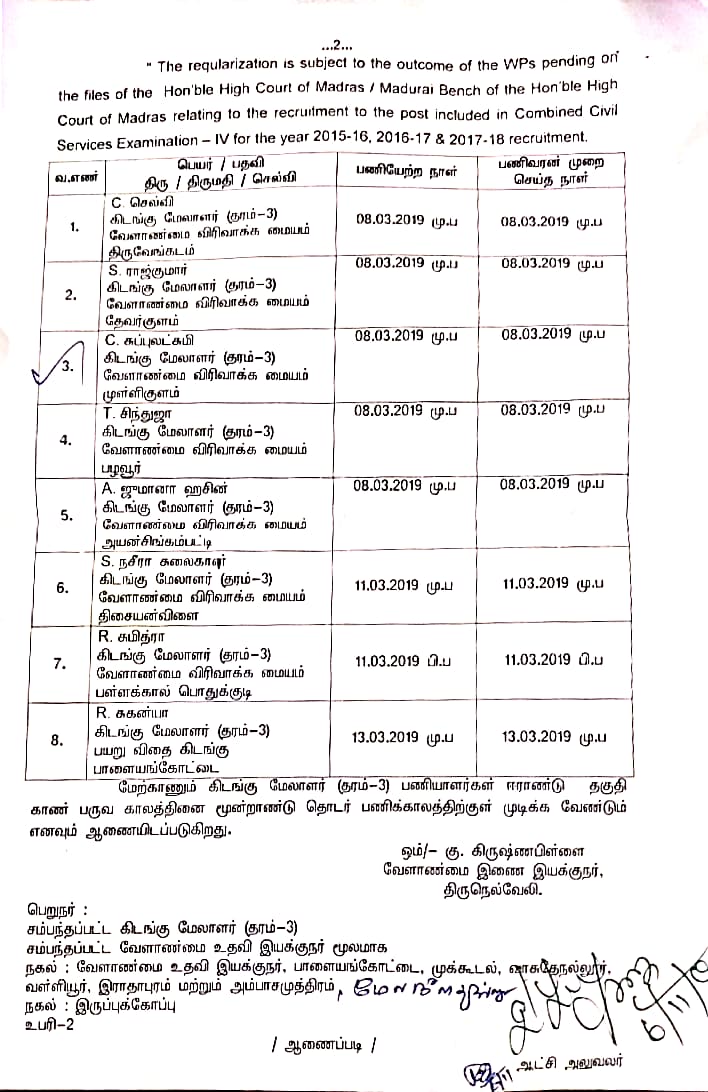 ...2...
" The reqularization is subject to the outcome of the WPs pending on
the files of the Hon'ble High Court of Madras / Madurai Bench of the Hon'ble High
Court of Madras relating to the recruitment to the post included in Combined Civil
Services Examination – IV for the year 2015-16, 2016-17 & 2017-18 recruitment.
வ.எண் பெயர் / பதவி பணியேற்ற நாள் பணிவரன் முறை
திரு / திருமதி / செல்வி செய்த நாள்
1. C. செல்வி 08.03.2019 மு.ப 08.03.2019 மு.ப
கிடங்கு மேலாளர் (தரம்–3)
வேளாண்மை விரிவாக்க மையம்
திருவேங்கடம்
2. S. ராஜ்குமார் 08.03.2019 மு.ப 08.03.2019 மு.ப
கிடங்கு மேலாளர் (தரம்–3)
வேளாண்மை விரிவாக்க மையம்
தேவர்குளம்
3. C. சுப்புலட்சுமி 08.03.2019 மு.ப 08.03.2019 மு.ப
கிடங்கு மேலாளர் (தரம்–3)
வேளாண்மை விரிவாக்க மையம்
முள்ளிகுளம்
4. T. சிந்துஜா 08.03.2019 மு.ப 08.03.2019 மு.ப
கிடங்கு மேலாளர் (தரம்–3)
வேளாண்மை விரிவாக்க மையம்
பழவூர்
5. A. ஜுமானா ஹசின் 08.03.2019 மு.ப 08.03.2019 மு.ப
கிடங்கு மேலாளர் (தரம்–3)
வேளாண்மை விரிவாக்க மையம்
அயன்சிங்கம்பட்டி
6. S. நசீரா 11.03.2019 மு.ப 11.03.2019 மு.ப
கிடங்கு மேலாளர் (தரம்–3)
வேளாண்மை விரிவாக்க மையம்
திசையன்விளை
7. R. சுமித்ரா 11.03.2019 பி.ப 11.03.2019 பி.ப
கிடங்கு மேலாளர் (தரம்–3)
வேளாண்மை விரிவாக்க மையம்
பள்ளக்கால் பொதுக்குடி
8. R. சுகன்யா 13.03.2019 மு.ப 13.03.2019 மு.ப
கிடங்கு மேலாளர் (தரம்–3)
பயறு விதை கிடங்கு
பாளையங்கோட்டை
மேற்காணும் கிடங்கு மேலாளர் (தரம்–3) பணியாளர்கள் ஈராண்டு தகுதி
காண் பருவ காலத்தினை மூன்றாண்டு தொடர் பணிக்காலத்திற்குள் முடிக்க வேண்டும்
எனவும் ஆணையிடப்படுகிறது.
ஒம்/– கு. கிருஷ்ணபிள்ளை
வேளாண்மை இணை இயக்குநர்,
திருநெல்வேலி.
பெறுநர் :
சம்பந்தப்பட்ட கிடங்கு மேலாளர் (தரம்–3)
சம்பந்தப்பட்ட வேளாண்மை உதவி இயக்குநர் மூலமாக
நகல் : வேளாண்மை உதவி இயக்குநர், பாளையங்கோட்டை, முக்கூடல், வாசுதேநல்லூர்,
வள்ளியூர், இராதாபுரம் மற்றும் அம்பாசமுத்திரம்,
நகல் : இருப்புக்கோப்பு
உபரி–2
/ ஆணைப்படி /
ஆட்சி அலுவலர்